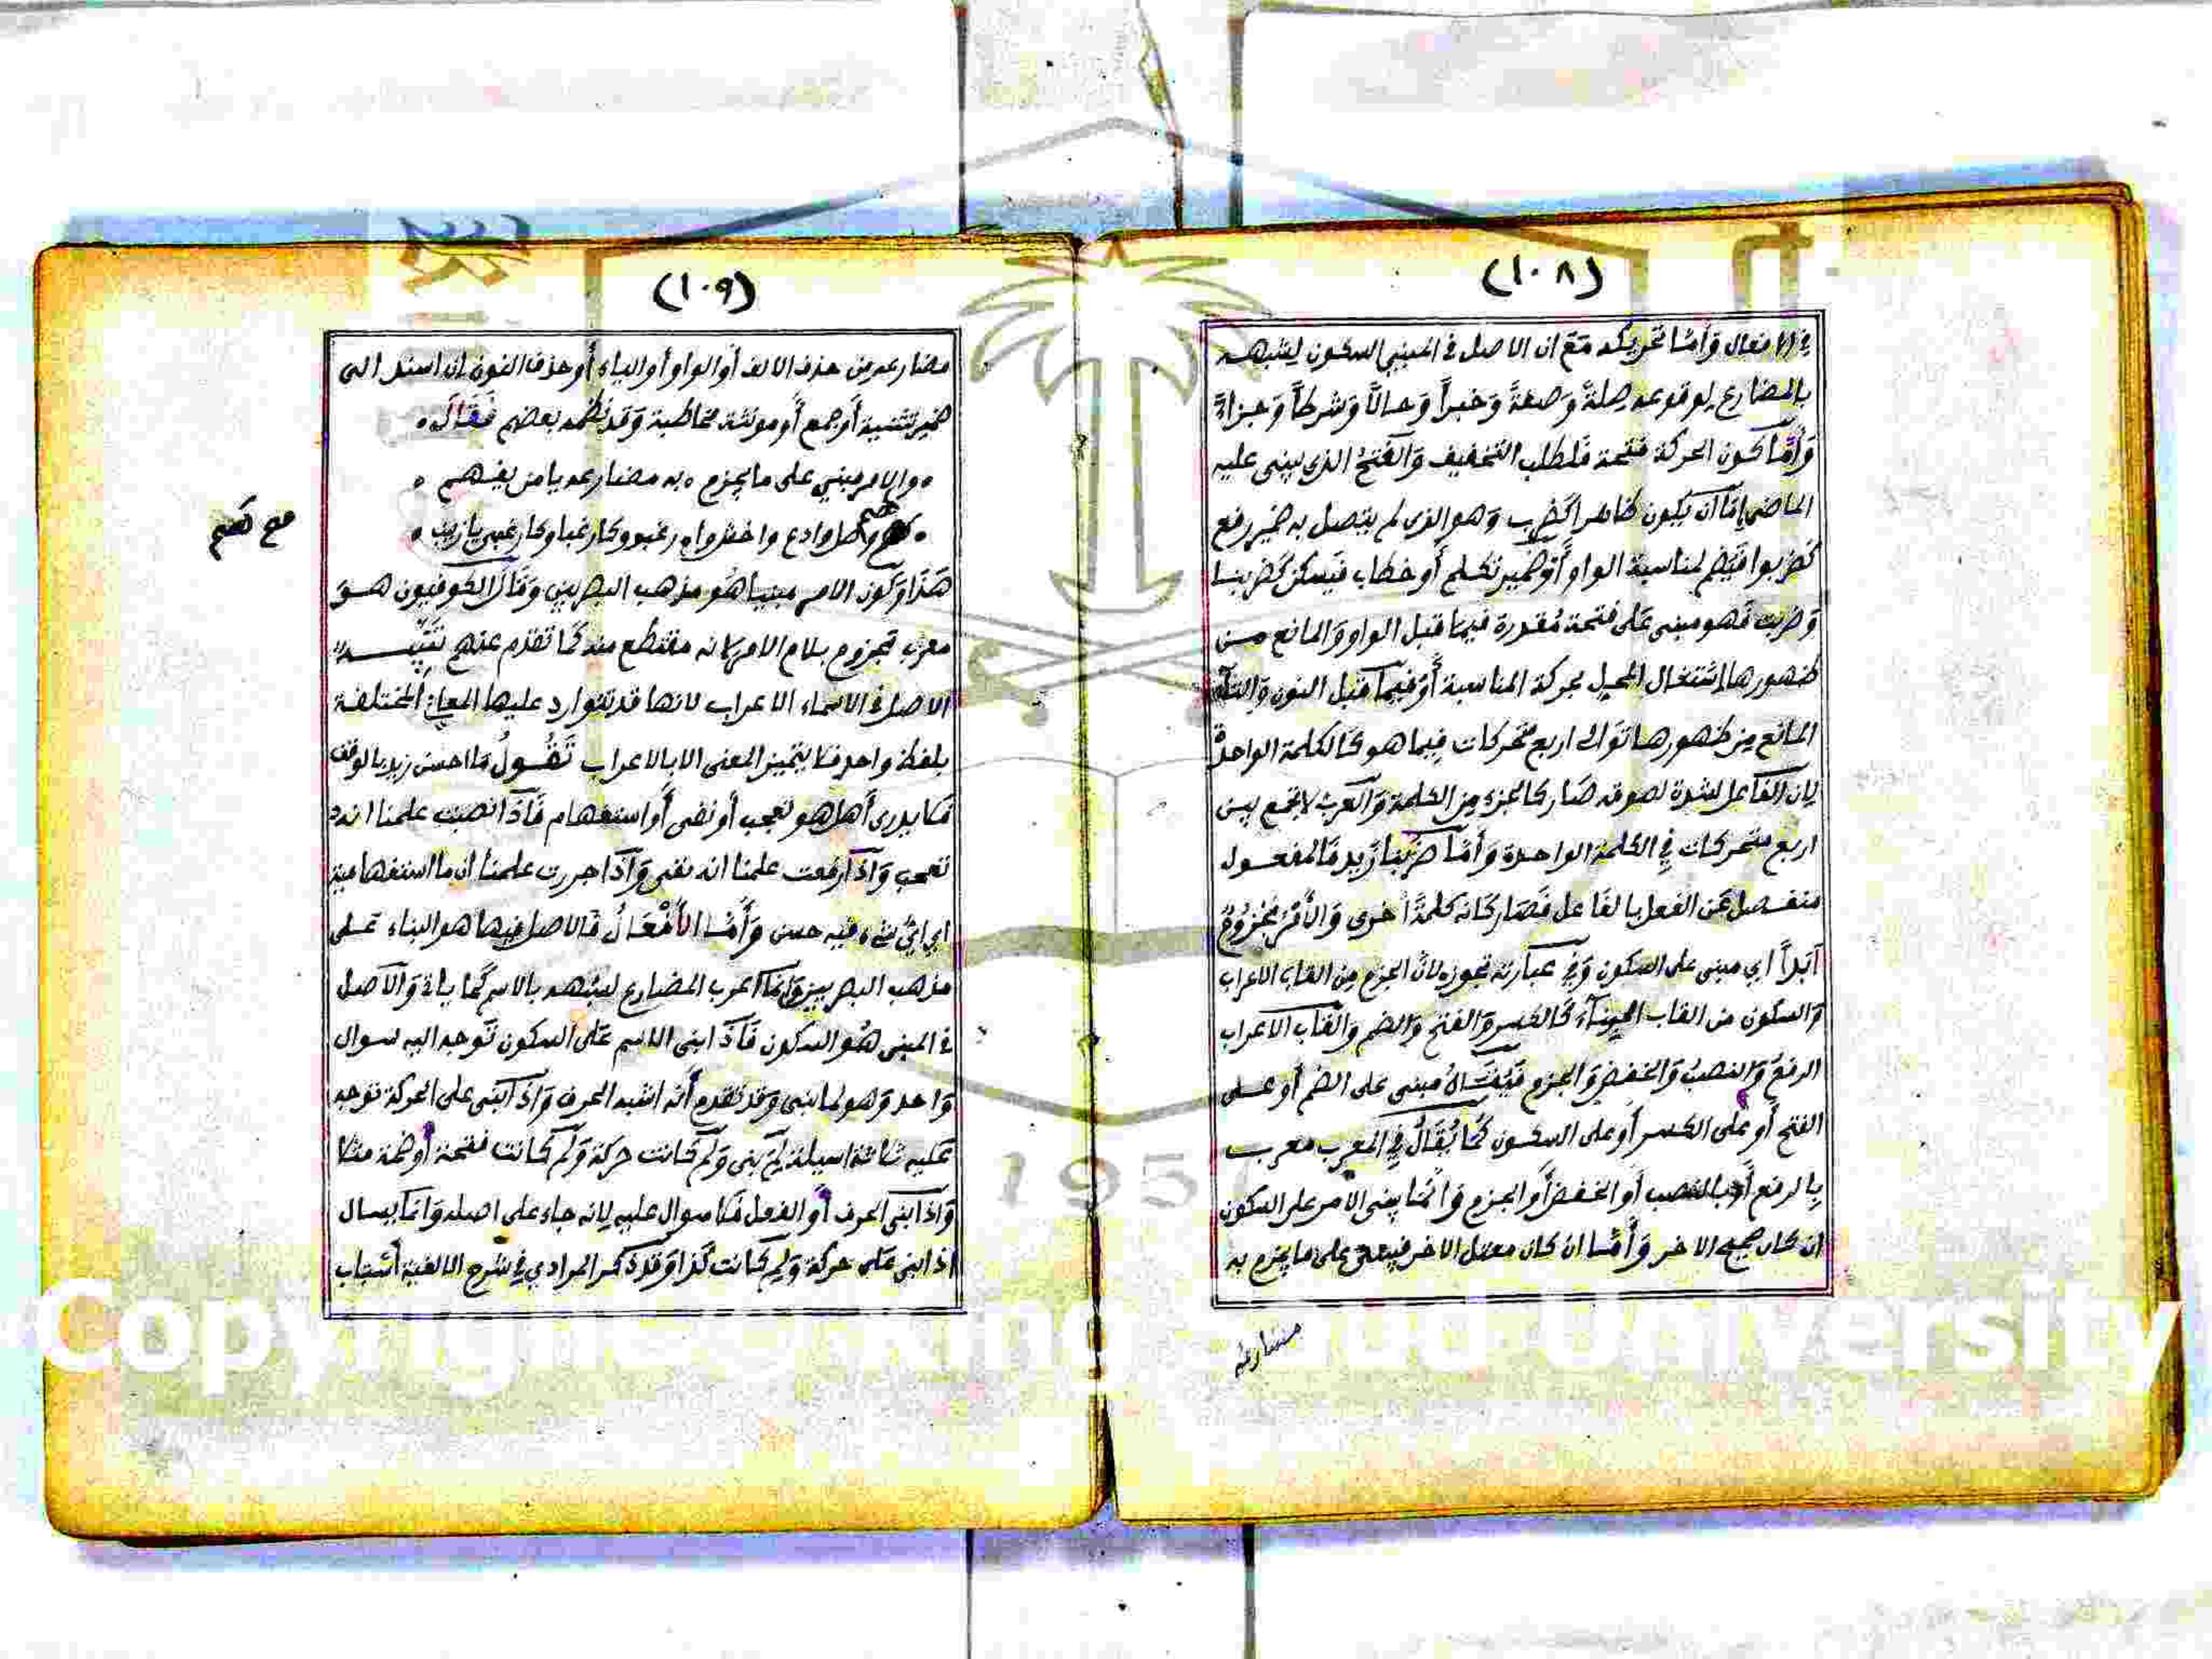 (١٠٨)
في الافعال وَأمّا تحريكه مَعَ ان الاصل في المبني السكون لِشبهه
بالمضارع لوقوعه صِلةً وَصفةً وَخبراً وَحالاً وَشرطاً وَجزاءً
وَأمّا كون الحركة فتحة فَلطلب التخفيف وَالفَتحُ الذي يبنى عليه
الماضي إمّا ان يكون ظاهرا كضرب وَهو الذي لم يتصل به ضمير رفع
كضربوا فَيضم لمناسبة الواو أَوْ ضمير تكلم أو خطاب فَيسكن كضربنا
وَضربت فَهو مبنى عَلى فتحة مُقدرة فيما قبل الواو وَالمانع مـن
ظهورها اشتغال المحل بحركة المناسبة أَوْ فيما قبل النون وَالتاء
المانع من ظهورها تَوالى اربع متحركات فِيما هو كَالكلمة الواحدة
لان الفَاعل لشدة لصوقه صَار كالجزء مِن الكلمة وَالعرب لا تجمع بين
اربع متحركات فِي الكلمة الواحدة وَأمّا ضربنا زَيد فَالمفعول
منفصل عَن الفعل بالفَاعل فَصَار كَانه كلمةً اخرى وَالأَمْرُ مَجْزُومٌ
اَبَداً اي مبنى على السكون وَفي عبَارته تجوز لانّ الجزم مِن القاب الاعراب
وَالسكون من القاب البناء كَالكسر وَالفتح وَالضم وَالقَاب الاعراب
الرفع وَالنصب وَالخفض وَالجزم فَيُقَالُ مبنى على الضم أو عـلى
الفتح أو على الكسر أو على السكون كَمَا يُقَالُ فِي المعرب معرب
بالرفع أَو بالنصب أو الخفض أو الجزم وَانّما يبنى الامر على السكون
ان كان صحيح الاخر وَأمّا ان كان معتل الاخر فيبنى على ما يجزم به
مضارعه
(١٠٩)
مضارعه من حذف الالف أَو الواو أو الياء أو حذف النون ان اسند الى
ضمير تثنية أَو جمع أَو مونثة مخاطبة وَقد نظمه بعضهم فَقَالَ ٠
٠ والامر مبني على ما يجزم ٠ به مضارعه يا من يفهم ٠
وصل وادع واخش وا رغبوا وكارغبا وكارغبي يازينب ٠
صح كصم
هَذَا وَكون الامر مبنيا هُو مذهب البصريين وَقَالَ الكوفيون هـو
معرب مجزوم بلام الامر لانه مقتطع منه كَمَا تقدم عنهم تَنْبِيـــه
الاصل في الاسماء الاعراب لانها قد تتوارد عليها المعاني المختلفة
بلفظ واحد فلا يتميز المعنى الا بالاعراب تَقُــولُ مَا احسن زيد بالوقف
فَلا يدرى أَهل هو تعجب أو نفى أَو استفهام فَاذَا نصبت علمنا انه
تعجب وَاذَا رفعت علمنا انه نفى وَاذَا جررت علمنا ان ما استفهامية
اي ايّ شيء فيه حسن وَأَمّـا الأَفْعَـالُ فَالاصل فيها هو البناء عَـلى
مذهب البصريين وَانّما اعرب المضارع لشبهه بالاسم كَما ياتي وَالاصل
في المبنى هُو السكون فَاذَا بنى الاسم عَلى السكون تَوجه اليه سوال
وَاحد وَهو لما بنى وَقد تقدم أنه اشبه الحرف وَاذَا بنى على الحركة توجه
عَليه ثلاثة اسيلة لِمَ بنى وَلِمَ كَانت حركة وَلِمَ كَانت فتحة أو ضمة مثلا
وَاذَا بنى الحرف أو الفعل فَلا سوال عليه لانه جاء على اصله وَانما يسال
اذا بنى عَلى حركة وَلِمَ كَانت كَذا وَقد ذكر المرادي فِي شرح الالفية أسباب
Copyright © King Saud University
1957